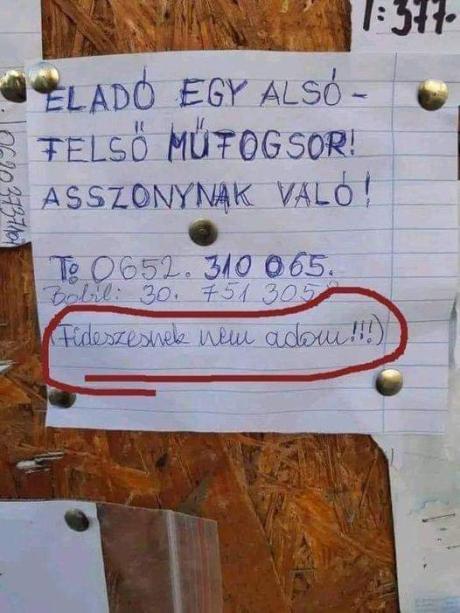 1:377.
ELADÓ EGY ALSÓ -
FELSŐ MŰFOGSOR!
ASSZONYNAK VALÓ!
T: 0652. 310 065.
Bobil: 30. 751 305
(Fideszesnek nem adom!!!)